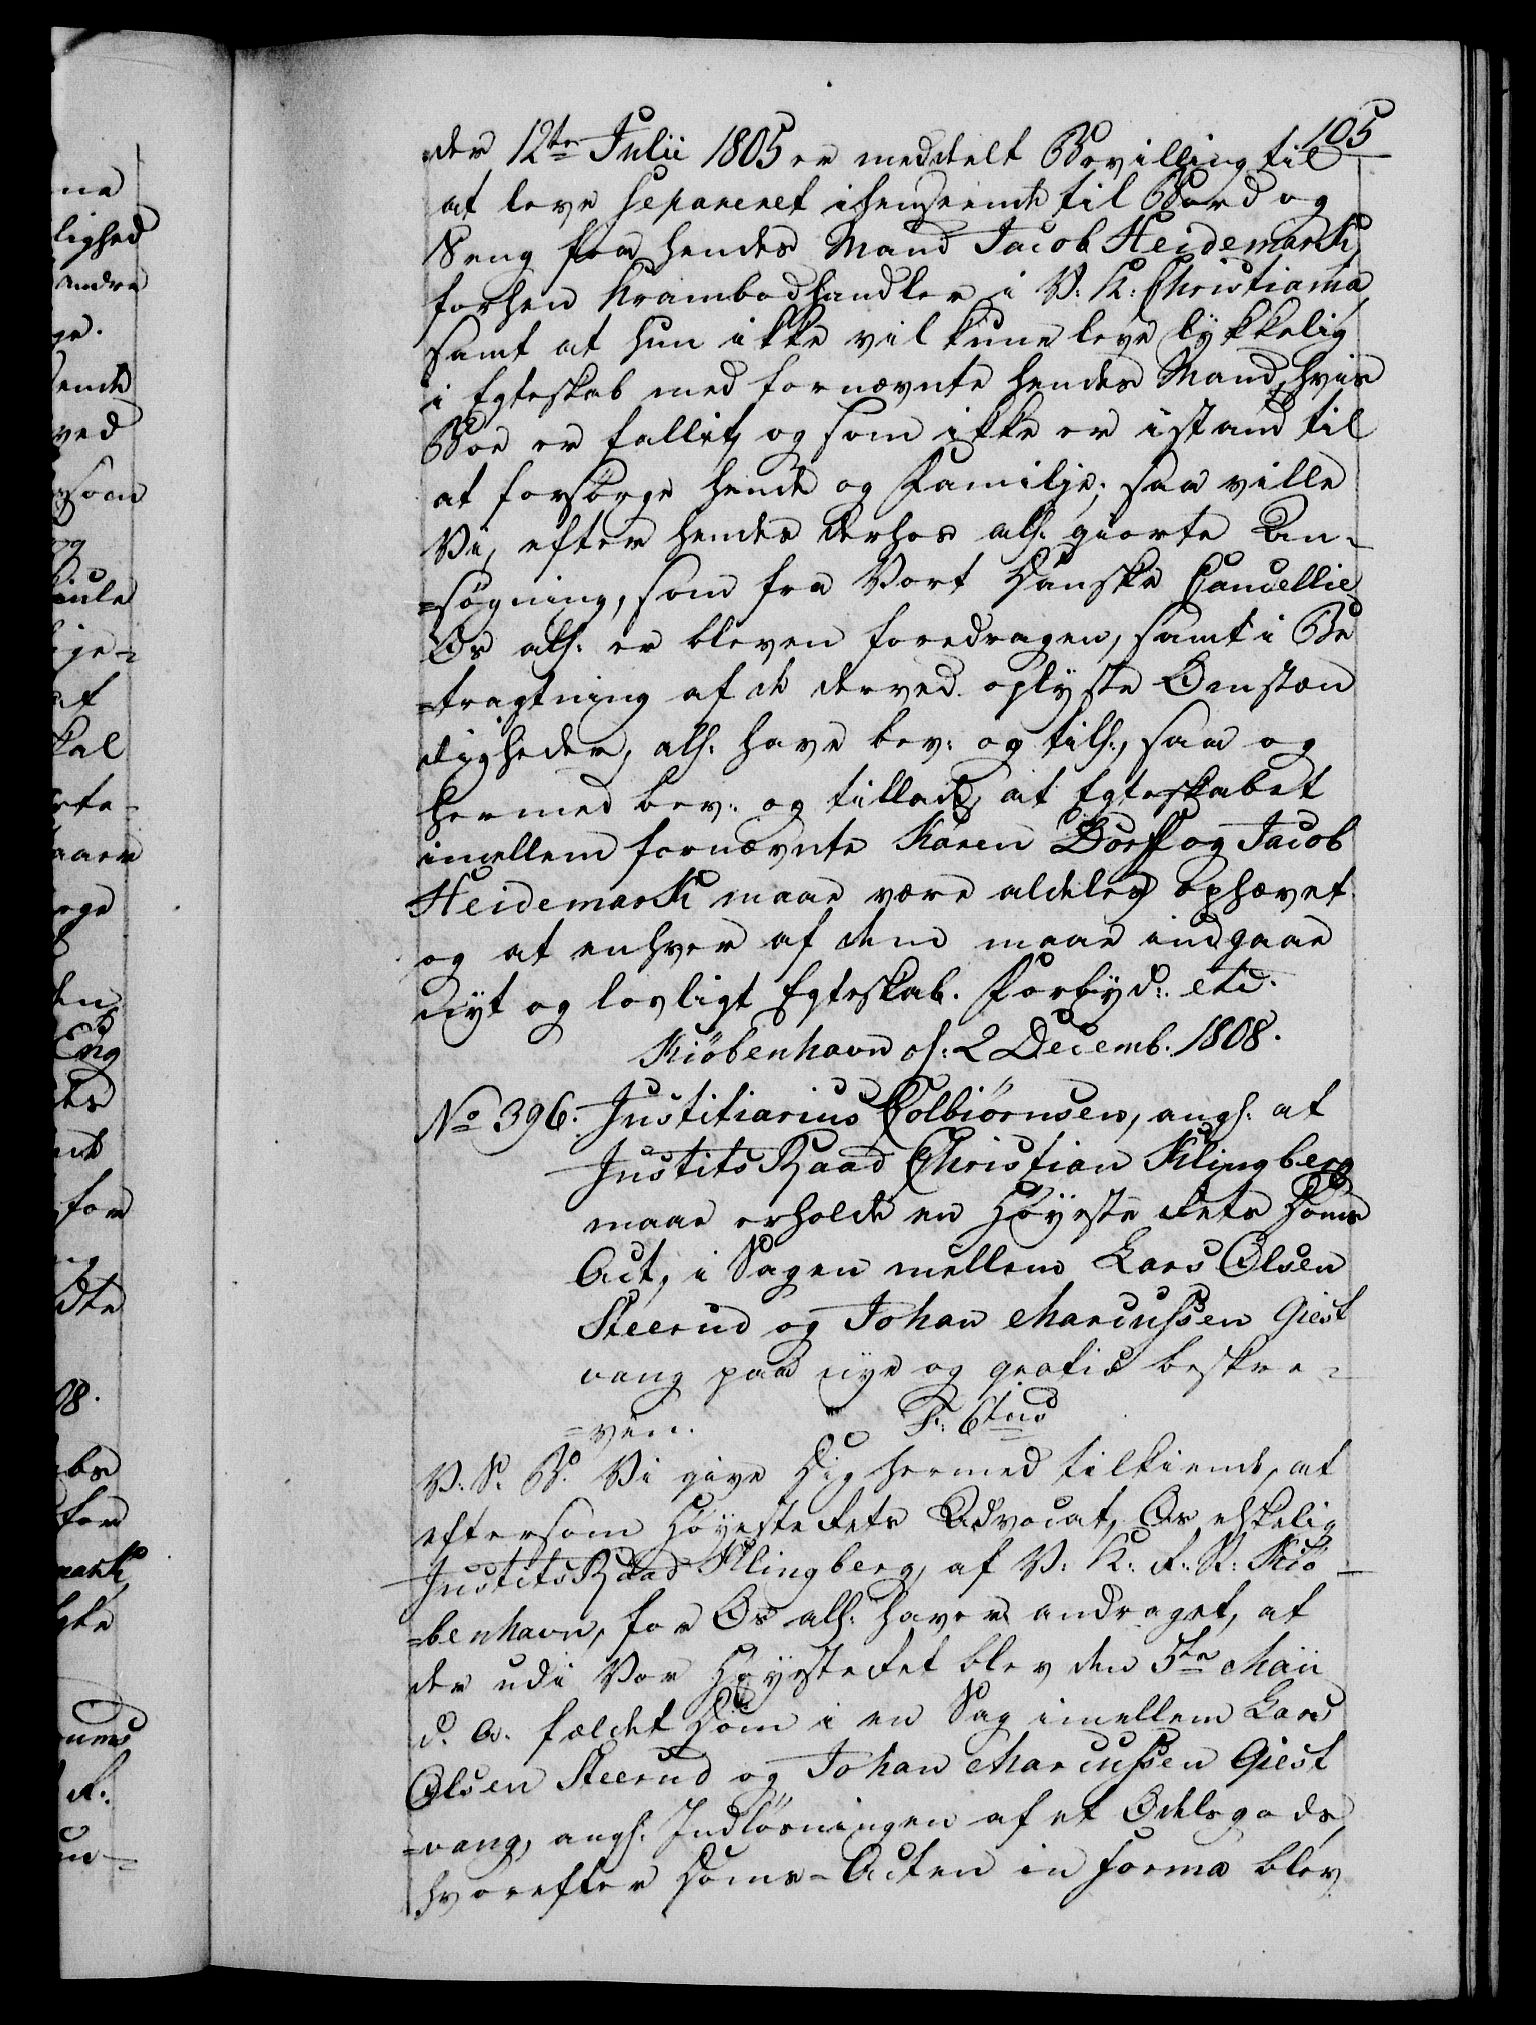 105
der 12te Julii 1805 er meddelt Bevilling til
at leve separeret i henseende til Bord og
Seng fra hendes Mand Jacob Heidemark,
forhen Krambodhandler i V: K: Christiania,
samt at hun ikke vil kune leve lykkelig
i Egteskab med fornævnte hendes Mand, hvis
Boe er fallit, og som ikke er istand til
at forsørge hende og Familje; saa ville
Vi, efter hendes derhos all: giorte An-
=søgning, som fra Vort Danske Cancellie
Os all: er bleven foredragen, samt i Be
=tragtning af de derved oplyste Omstæn
digheder, all: have bev: og till:, saa og
hermed bev: og tillade, at Egteskabet
imellem fornævnte Karen Dorff og Jacob
Heidemark maae være aldeles ophævet
og at enhver af dem maae indgaae
nyt og lovligt Egteskab. Forbyd: etc.
Kiöbenhavn d: 2 Decemb. 1808.
No 396. Justitiarius Colbiörnsen, ang: at
JustitsRaad Christian Klingberg
maae erholde en Høyeste Rets Doms
Act, i Sagen mellem Lars Olsen
Steerud og Johan Marcussen Giest
vang paa nye og gratis beskre=
=ven.
F: 6tus
V. S. B. Vi give Dig hermed tilkiende, at
eftersom Høyesterets Advocat, Os elskelig
JustitsRaad Klingberg, af V: K: R: S: Kiö-
=benhavn, for Os all: haver andraget, at
der udi Vor Høyesteret blev den 5te Maii
d. A. fældet Dom i en Sag imellem Lars
Olsen Steerud og Johan Marcussen Giest
=vang, ang: Indløsningen af et Odelsgods,
hvorefter Doms-Acten in forma blev